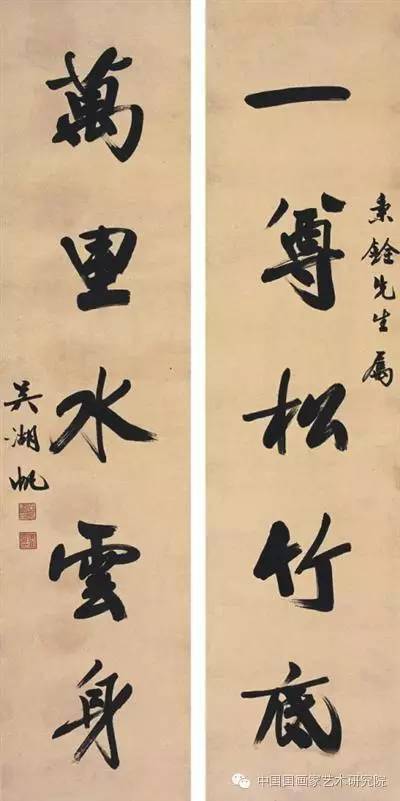 一尊松竹底
秉銓先生屬
萬里水雲身
吳湖帆
中国国画家艺术研究院